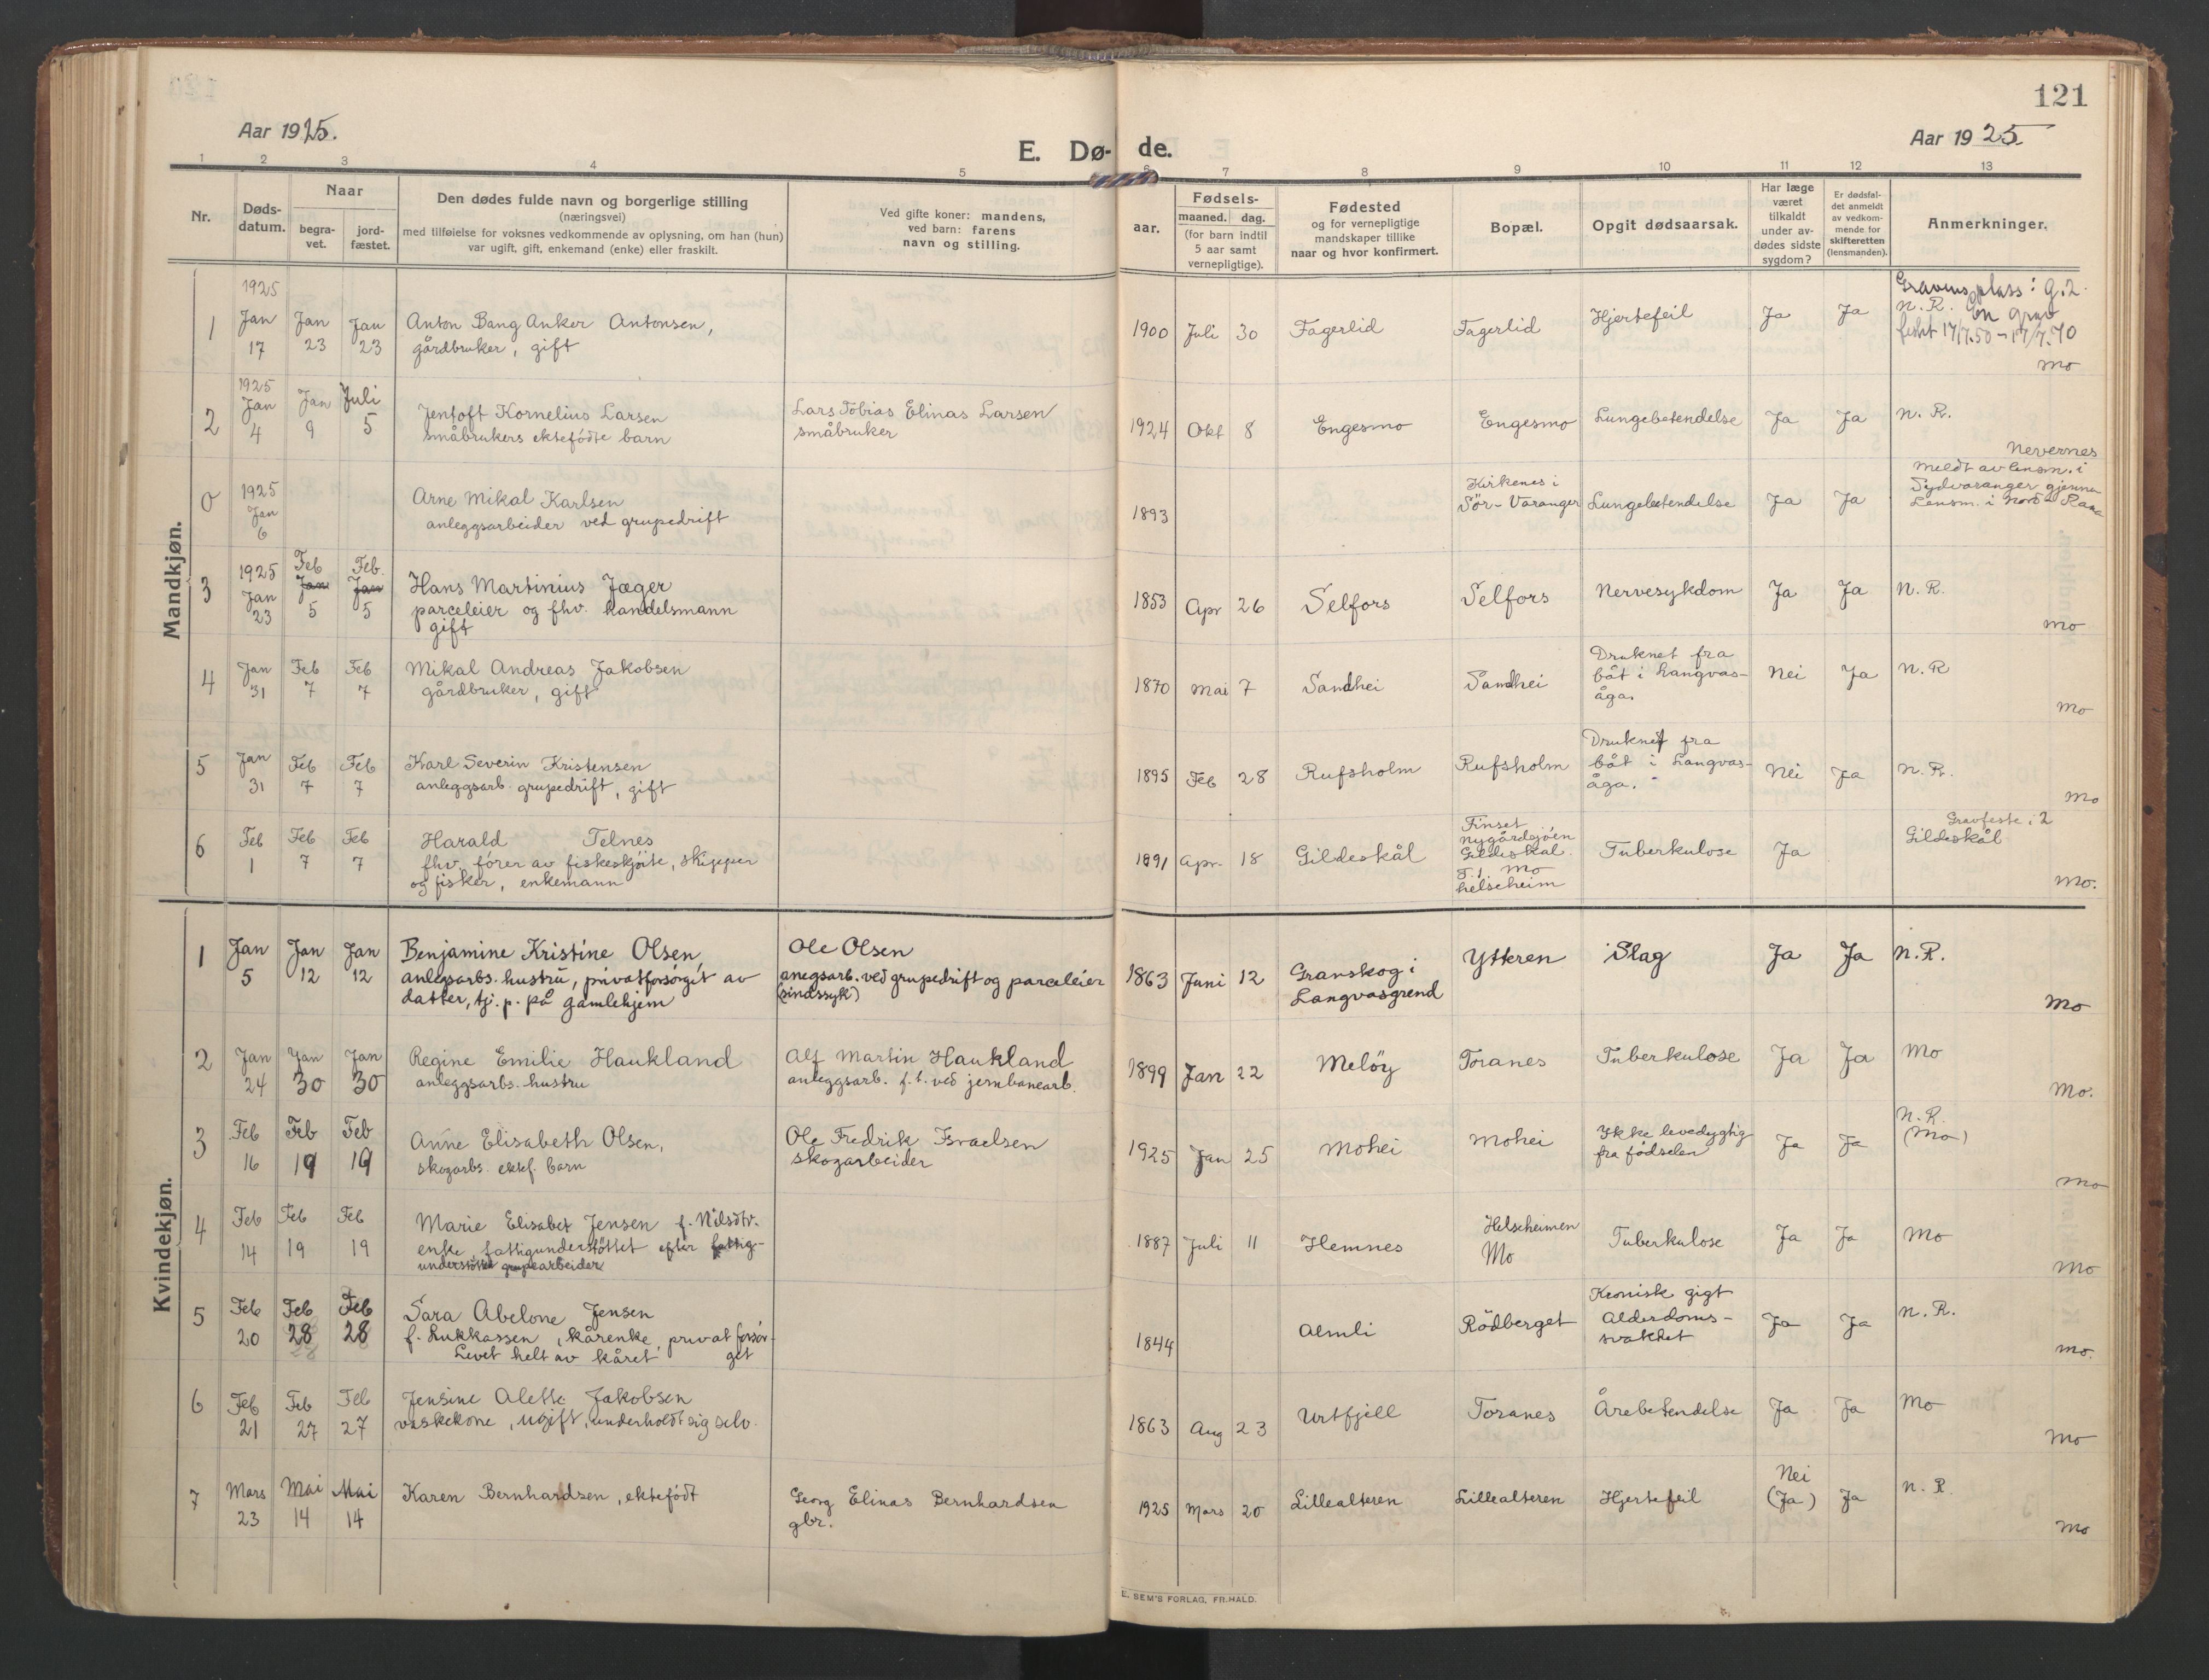 121
Aar 1925.
Aar 1925
E. Dø- de.
1 2 3 4 5 6 7 8 9 10 11 12 13
Nr.
Døds-
datum.
Naar
begra-
vet.
jord-
fæstet.
Den dødes fulde navn og borgerlige stilling
(næringsvei)
med tilføielse for voksnes vedkommende av oplysning, om han (hun)
var ugift, gift, enkemand (enke) eller fraskilt.
Ved gifte koner: mandens,
ved barn: farens
navn og stilling.
Fødsels-
aar.
maaned. dag.
(for barn indtil
5 aar samt
vernepligtige).
Fødested
og for vernepligtige
mandskaper tillike
naar og hvor konfirmert.
Bopæl.
Opgit dødsaarsak.
Har læge
været
tilkaldt
under av-
dødes sidste
sygdom?
Er dødsfal-
det anmeldt
av vedkom-
mende for
skifteretten
(lensmanden).
Anmerkninger.
Mandkjøn.
1
1925
Jan
17
Jan
23
Jan
23
Anton Bang Anker Antonsen,
gårdbruker, gift
1900 Juli 30
Fagerlid
Fagerlid
Hjertefeil
Ja
Ja
Gravensplass: G.2.
N.R. En grav
festet 17/7.50 - 17/7.70
Mo
2
1925
Jan
4
Jan
9
Juli
5
Jentoft Kornelius Larsen
småbrukers ektefödte barn
Lars Tobias Elinas Larsen
småbruker
1924 Okt 8
Engesmo
Engesmo
Lungebetendelse
Ja
Ja
N.R.
Nevernes
0
1925
Jan
6
Arne Mikal Karlsen
anleggsarbeider ved grupedrift
1893
Kirkenes i
Sör-Varanger
Lungebetendelse
Ja
Ja
Meldt av lensm. i
Sydvaranger gjennem
Lensm. i Nord-Rana
3
1925
Jan
23
Feb
Jan
5
Feb.
Jan
5
Hans Martinius Jæger
parceleier og fhv. handelsmann
gift
1853 Apr 26
Selfors
Selfors
Nervesykdom
Ja
Ja
N.R.
Mo
4
Jan
31
Feb
7
Feb
7
Mikal Andreas Jakobsen
gårdbruker, gift
1870 Mai 7
Sandhei
Sandhei
Druknet fra
båt i Langvas-
åga.
Nei
Ja
N.R
Mo
5
Jan
31
Feb
7
Feb
7
Karl Severin Kristensen
anleggsarb. grupedrift, gift
1895 Feb 28
Rufsholm
Rufsholm
Druknet fra
båt i Langvas-
åga.
Nei
Ja
N.R.
Mo
6
Feb
1
Feb
7
Feb
7
Harald Telnes
fhv. förer av fiskeskjöite, skipper
og fisker, enkemann
1891 Apr. 18
Gildeskål
Finset
Nygårdsjöen
Gildeskal.
T.t. Mo
helseheim
Tuberkulose
Ja
Gravfeste i 2
Gildeskål
Mo.
Kvindekjøn.
1
Jan
5
Jan
12
Jan
12
Benjamine Kristine Olsen,
anlegsarbs. hustru, privatforsörget av
datter, tj. p. på gamlehjem
Ole Olsen
anegsarb. ved grupedrift og parceleier
(sindssyk)
1863 Juni 12
Granskog i
Langvasgrend
Ytteren
Slag
Ja
Ja
N.R.
Mo
2
Jan
24
Jan
30
Jan
30
Regine Emilie Haukland
anleggsarbs. hustru
Alf Martin Haukland
anleggsarb. f.t. ved jernbanearb.
1899 Jan 22
Melöy
Toranes
Tuberkulose
Ja
Ja
Mo
Mo.
3
Feb
16
Feb
19
Feb
19
Anne Elisabeth Olsen,
skogarbs. ektef. barn
Ole Fredrik Israelsen
skogarbeider
1925 Jan 25
Mohei
Mohei
Ikke levedygtig
fra födselen
Ja
Ja
N.R.
(Mo)
Mo
4
Feb
14
Feb
19
Feb
19
Marie Elisabet Jensen f. Nilsdtr.
enke, fattigunderstöttet efter fattig-
understöttet grupearbeider
1887 Juli 11
Hemnes
Helseheimen
Mo
Tuberkulose
Ja
Ja
Mo
Mo
5
Feb
20
Feb
28
28
Feb
28
Sara Abelone Jensen
f. Lukkassen, kårenke, privat forsör-
Levet helt av kåret get
1844
Almli
Rödberget
Kronisk gigt
Alderdoms-
svakhet
Ja
Ja
N.R.
Mo.
6
Feb
21
Feb
27
Feb
27
Jensine Alette Jakobsen
vaskekone, ugift, underholdt sig selv.
1863 Aug 23
Urtfjell
Toranes
Årebetendelse
Ja
Ja
Mo
Mo
7
Mars
23
Mai
14
Mai
14
Karen Bernhardsen, ektefödt
Georg Elinas Bernhardsen
gbr.
1925 Mars 20
Lillealteren
Lillealteren
Hjertefeil
Nei
(Ja)
Ja
N.R.
Mo
E. SEM'S FORLAG, FR.HALD.